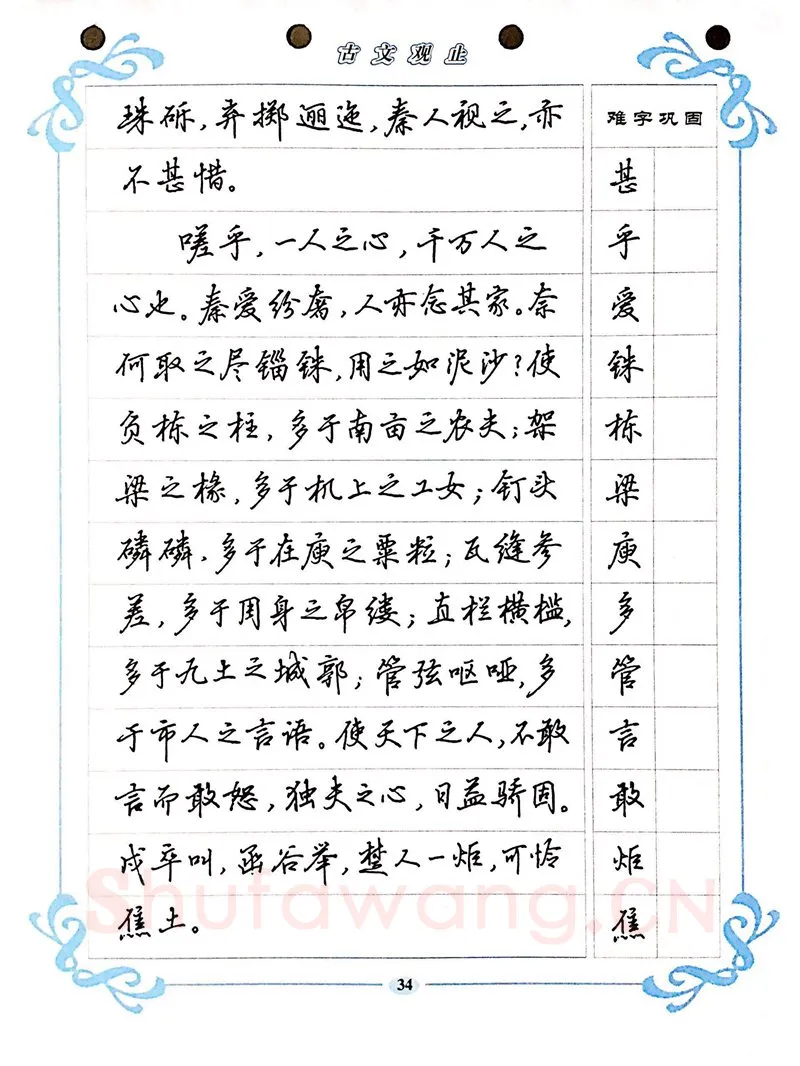 古文观止
珠砾，弃掷逦迤，秦人视之，亦
不甚惜。
嗟乎，一人之心，千万人之
心也。秦爱纷奢，人亦念其家。奈
何取之尽锱铢，用之如泥沙？使
负栋之柱，多于南亩之农夫；架
梁之椽，多于机上之工女；钉头
磷磷，多于在庾之粟粒；瓦缝参
差，多于周身之帛缕；直栏横槛，
多于九土之城郭；管弦呕哑，多
于市人之言语。使天下之人，不敢
言而敢怒，独夫之心，日益骄固。
戍卒叫，函谷举，楚人一炬，可怜
焦土。
难字巩固
甚
乎
爱
铢
栋
梁
庾
多
管
言
敢
炬
焦
34
Shufawang.CN